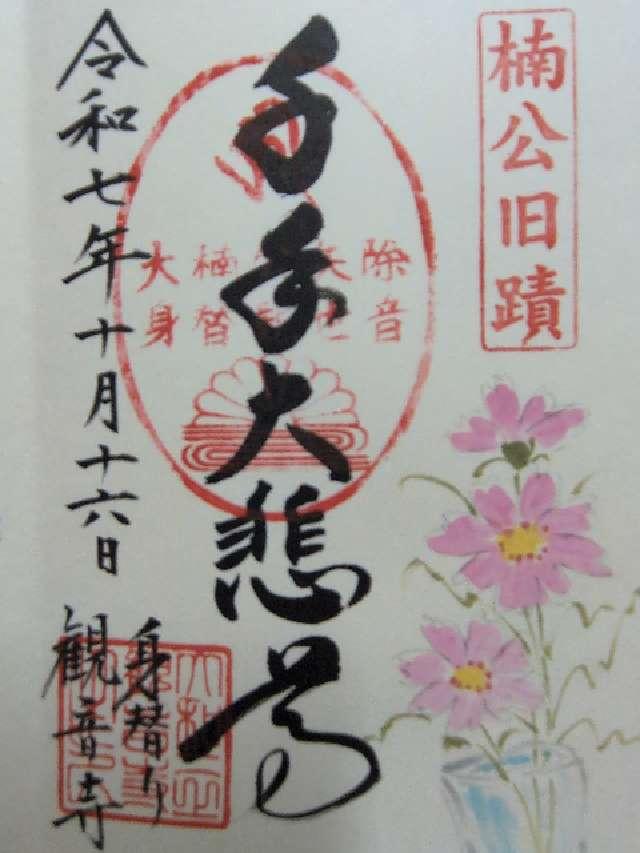 楠公旧蹟
千手大悲
大楠公矢除
身替観世音
令和七年十月十六日
身替り
観音寺